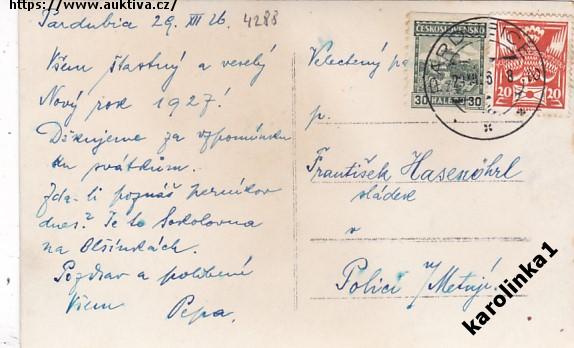 https://www.auktiva.cz/
Pardubice 29. XII 26.
4288
Všem šťastný a veselý
Nový rok 1927!
Děkujeme za vzpomínku
ku svátkům.
Zda-li poznáš perníkov
dnes? Je to Sokolovna
na Olšinkách.
Pozdrav a políbení
Všem Pepa.
ČESKOSLOVENSKO
30 HALÉŘŮ 30
20 20
PARDUBICE
Velectěný pan
p.
František Hasenöhrl
sládek
v
Polici n/Metují.
karolinka1